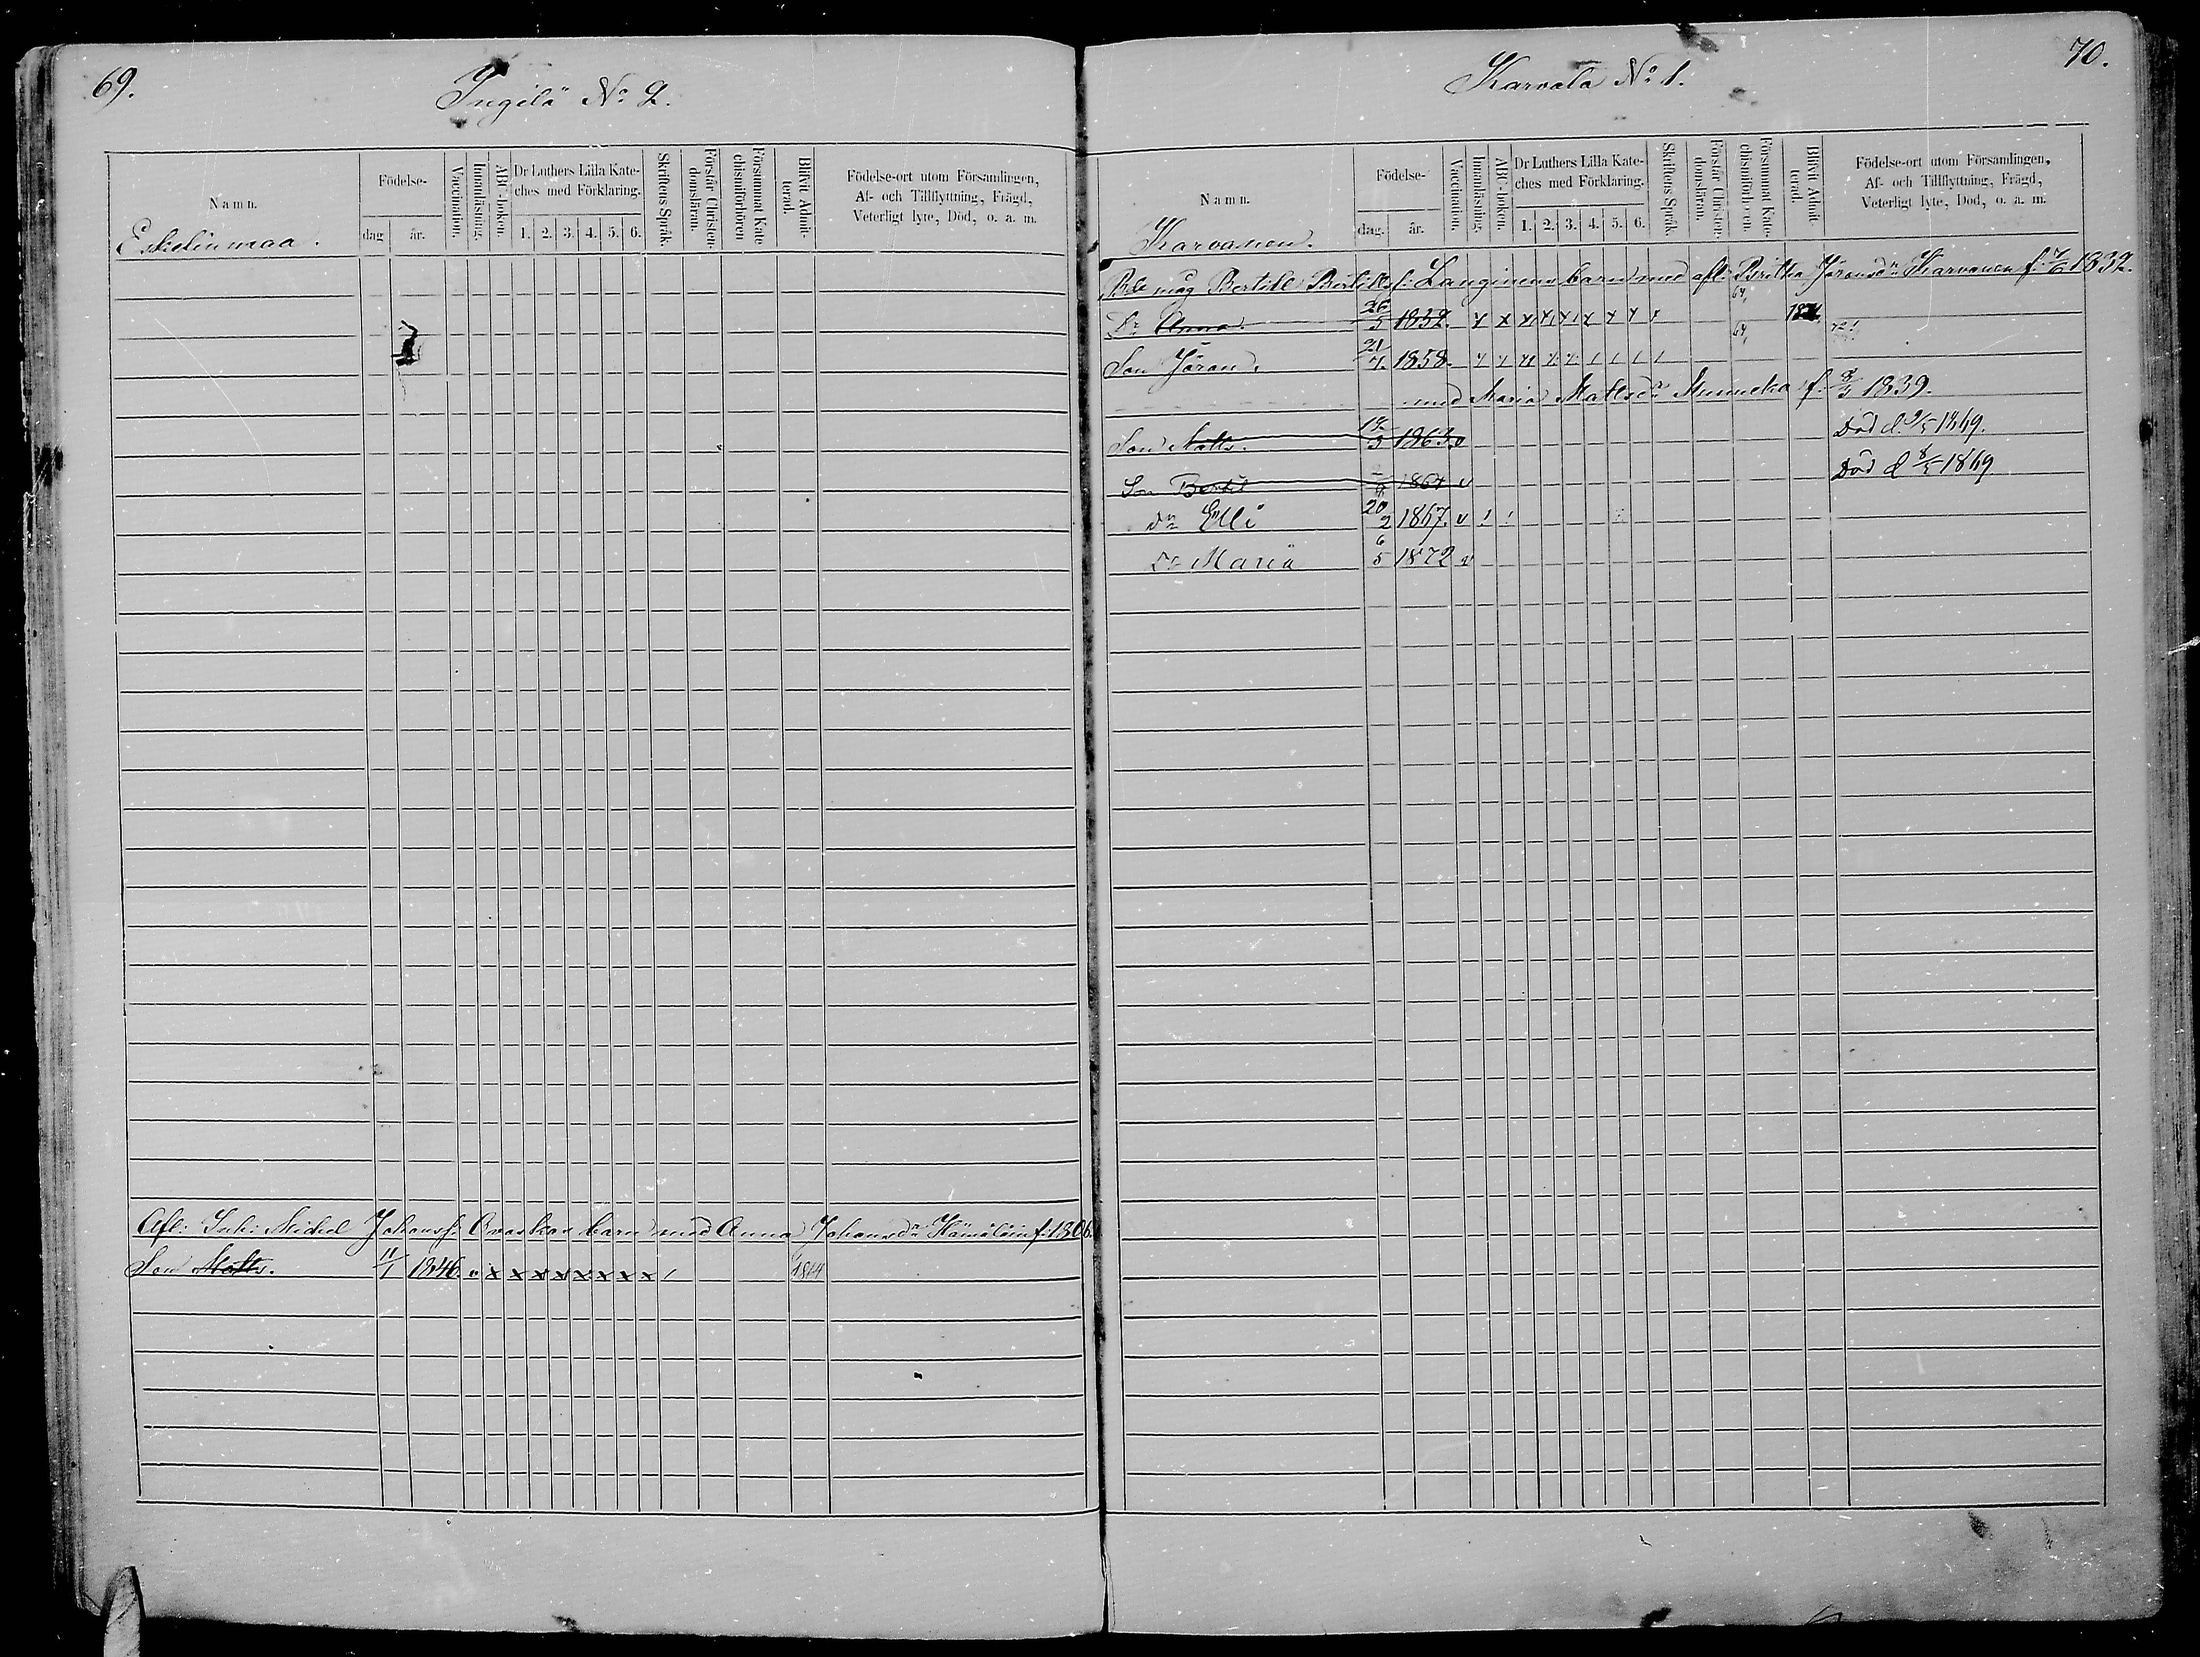 69.
Ingilä No 2.
Namn.
Födelse-
dag
år.
Vaccination.
Innanläsning.
ABC-boken.
Dr Luthers Lilla Kate-
ches med Förklaring.
1. 2. 3. 4. 5. 6.
Skriftens Språk.
Förstår Christen-
domsläran.
Försummat Kate
chismiförhören
Blifvit Admit-
terad.
Födelse-ort utom Församlingen,
Af- och Tillflyttning, Frägd,
Veterligt lyte, Död, o. a. m.
Eskelinmaa.
Afl: Inh: Michel Johansf: barn med Anna Johansdr Hämäläin f: 1806.
Son Matts. 11/1 1846. v x x x x x x x x / 1864
70.
Karvala No 1.
Namn.
Födelse-
dag.
år.
Vaccination.
Innanläsning.
ABC-boken.
Dr Luthers Lilla Kate-
ches med Förklaring.
1. 2. 3. 4. 5. 6.
Skriftens Språk.
Förstår Christen-
domsläran.
Försummat Kate-
chismiförh:en.
Blifvit Admit-
terad.
Födelse-ort utom Församlingen,
Af- och Tillflyttning, Frägd,
Veterligt lyte, Död, o. a. m.
Karvanen.
Bde måg Bertill Bertillsf: Langinens barn med afl: Britha Jöransdr Karvanen f: 1832.
Dr Anna. 26/5 1852. 64,
Son Jöran. 21/7. 1858. 64,
med Maria Mattsdr f: 1839.
Son Matts. 12/3 1863. v Död d. 9/5 1869.
Son Bertil 1864 v Död d 8/5 1869
Dr Elli 20/2 1867. v ! !
Dr Maria 6/5 1872 v